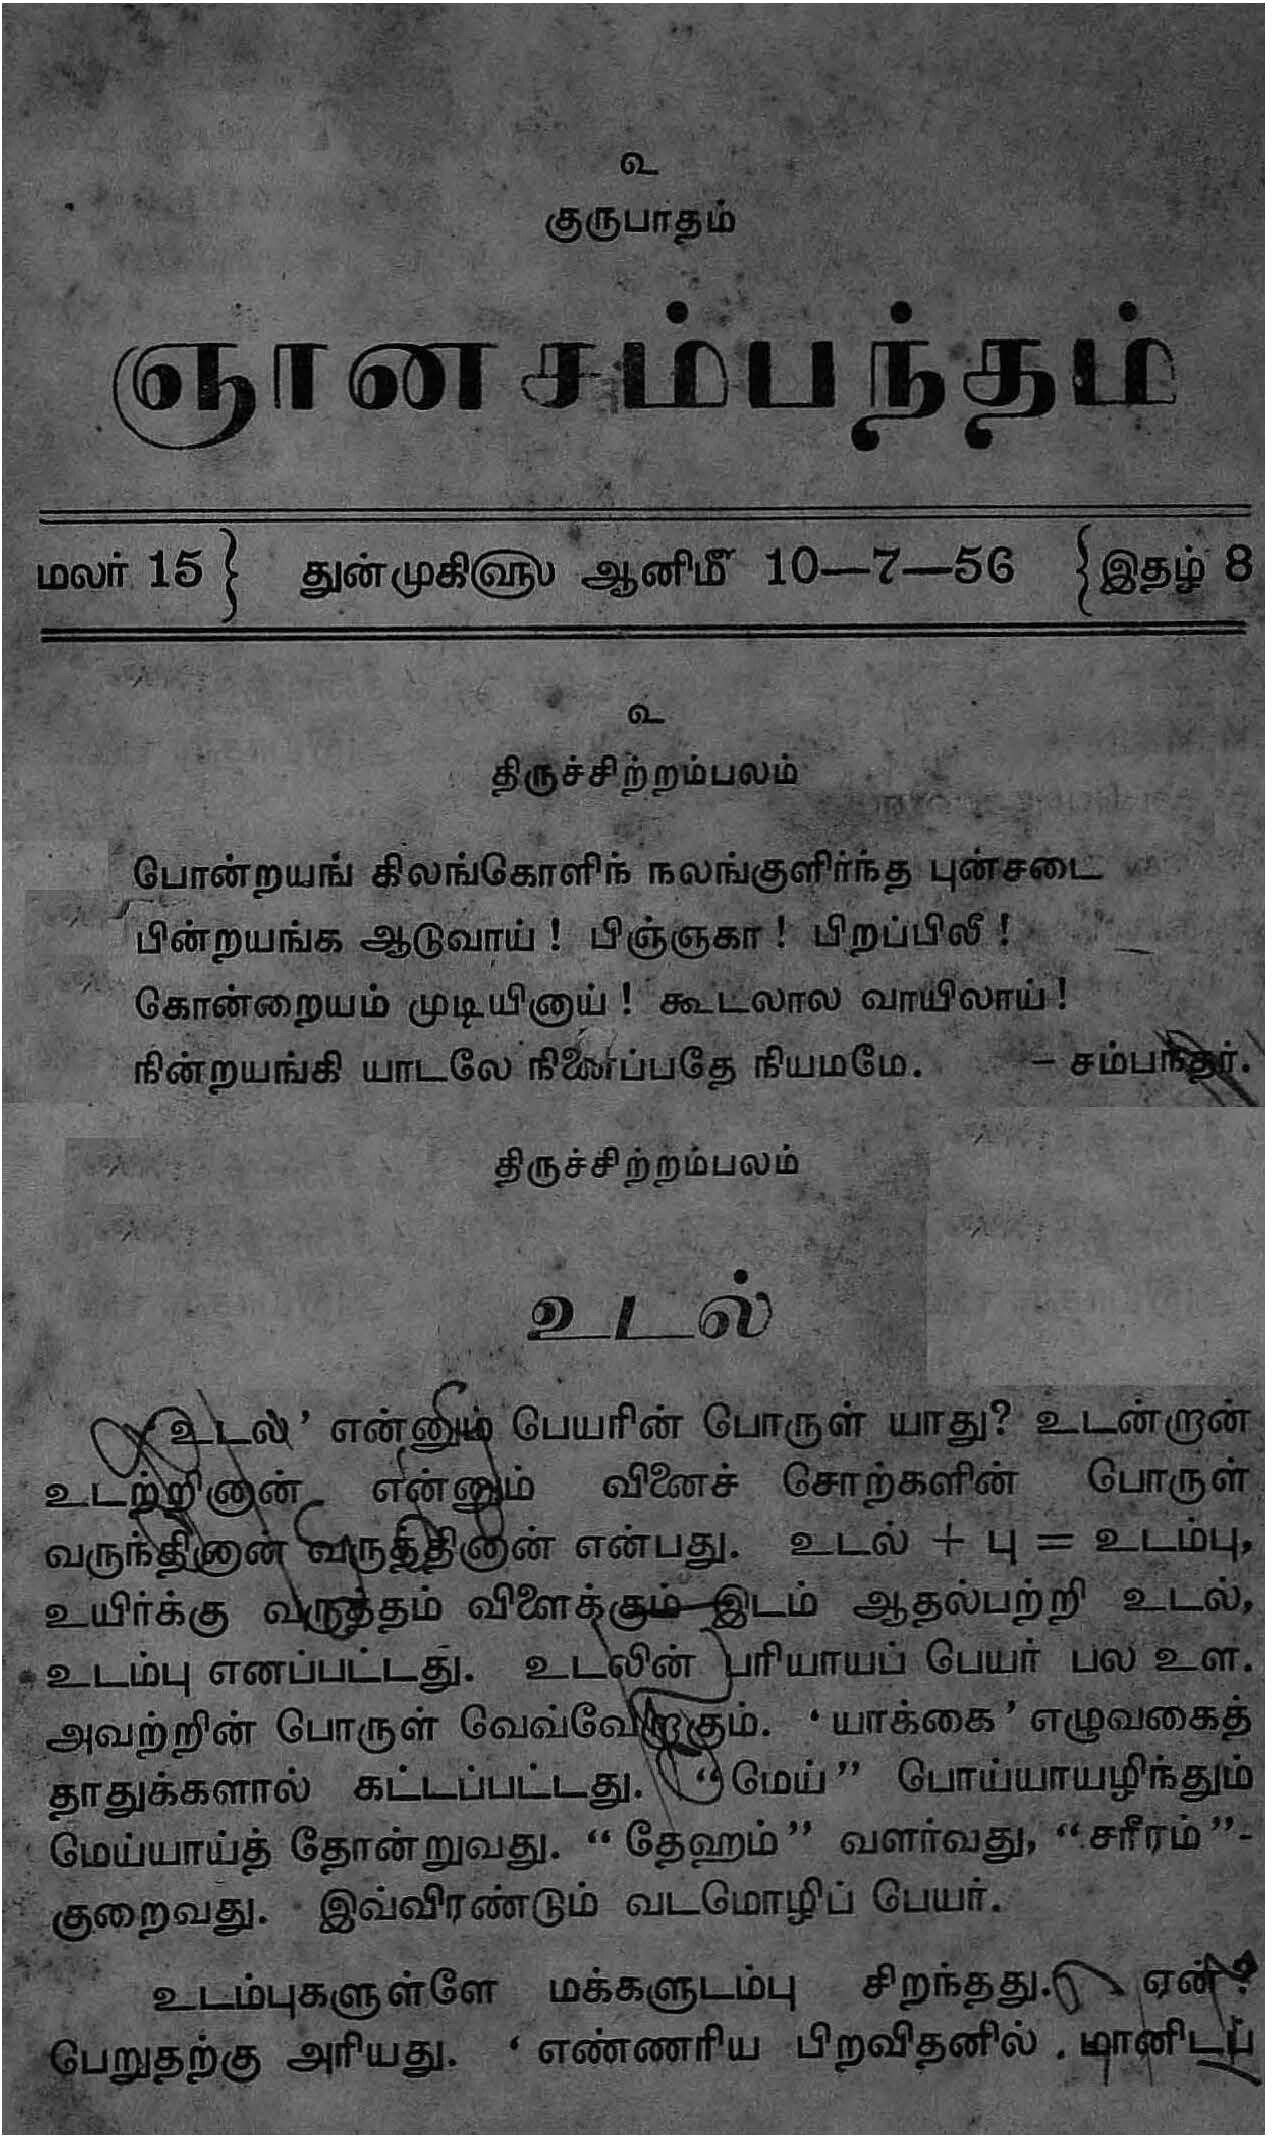 உ
குருபாதம்
ஞானசம்பந்தம்
மலர் 15 } துன்முகி௵ ஆனி௴ 10—7—56 { இதழ் 8
உ
திருச்சிற்றம்பலம்
பொன்றயங் கிலங்கொளிந் நலங்குளிர்ந்த புன்சடை
பின்றயங்க ஆடுவாய் ! பிஞ்ஞகா ! பிறப்பிலீ !
கொன்றையம் முடியினாய் ! கூடலால வாயிலாய் !
நின்றயங்கி யாடலே நினைப்பதே நியமமே. - சம்பந்தர்.
திருச்சிற்றம்பலம்
உடல்
‘உடல்’ என்னும் பெயரின் பொருள் யாது? உடன்றான்
உடற்றினான் என்னும் வினைச் சொற்களின் பொருள்
வருந்தினான் வருத்தினான் என்பது. உடல் + பு = உடம்பு,
உயிர்க்கு வருத்தம் விளைக்கும் இடம் ஆதல்பற்றி உடல்,
உடம்பு எனப்பட்டது. உடலின் பரியாயப் பெயர் பல உள.
அவற்றின் பொருள் வெவ்வேறாகும். ‘யாக்கை’ எழுவகைத்
தாதுக்களால் கட்டப்பட்டது. “மெய்” பொய்யாயழிந்தும்
மெய்யாய்த் தோன்றுவது. “தேஹம்” வளர்வது, “சரீரம்”-
குறைவது. இவ்விரண்டும் வடமொழிப் பெயர்.
உடம்புகளுள்ளே மக்களுடம்பு சிறந்தது. ஏன்?
பெறுதற்கு அரியது. ‘எண்ணரிய பிறவிதனில் மானிடப்